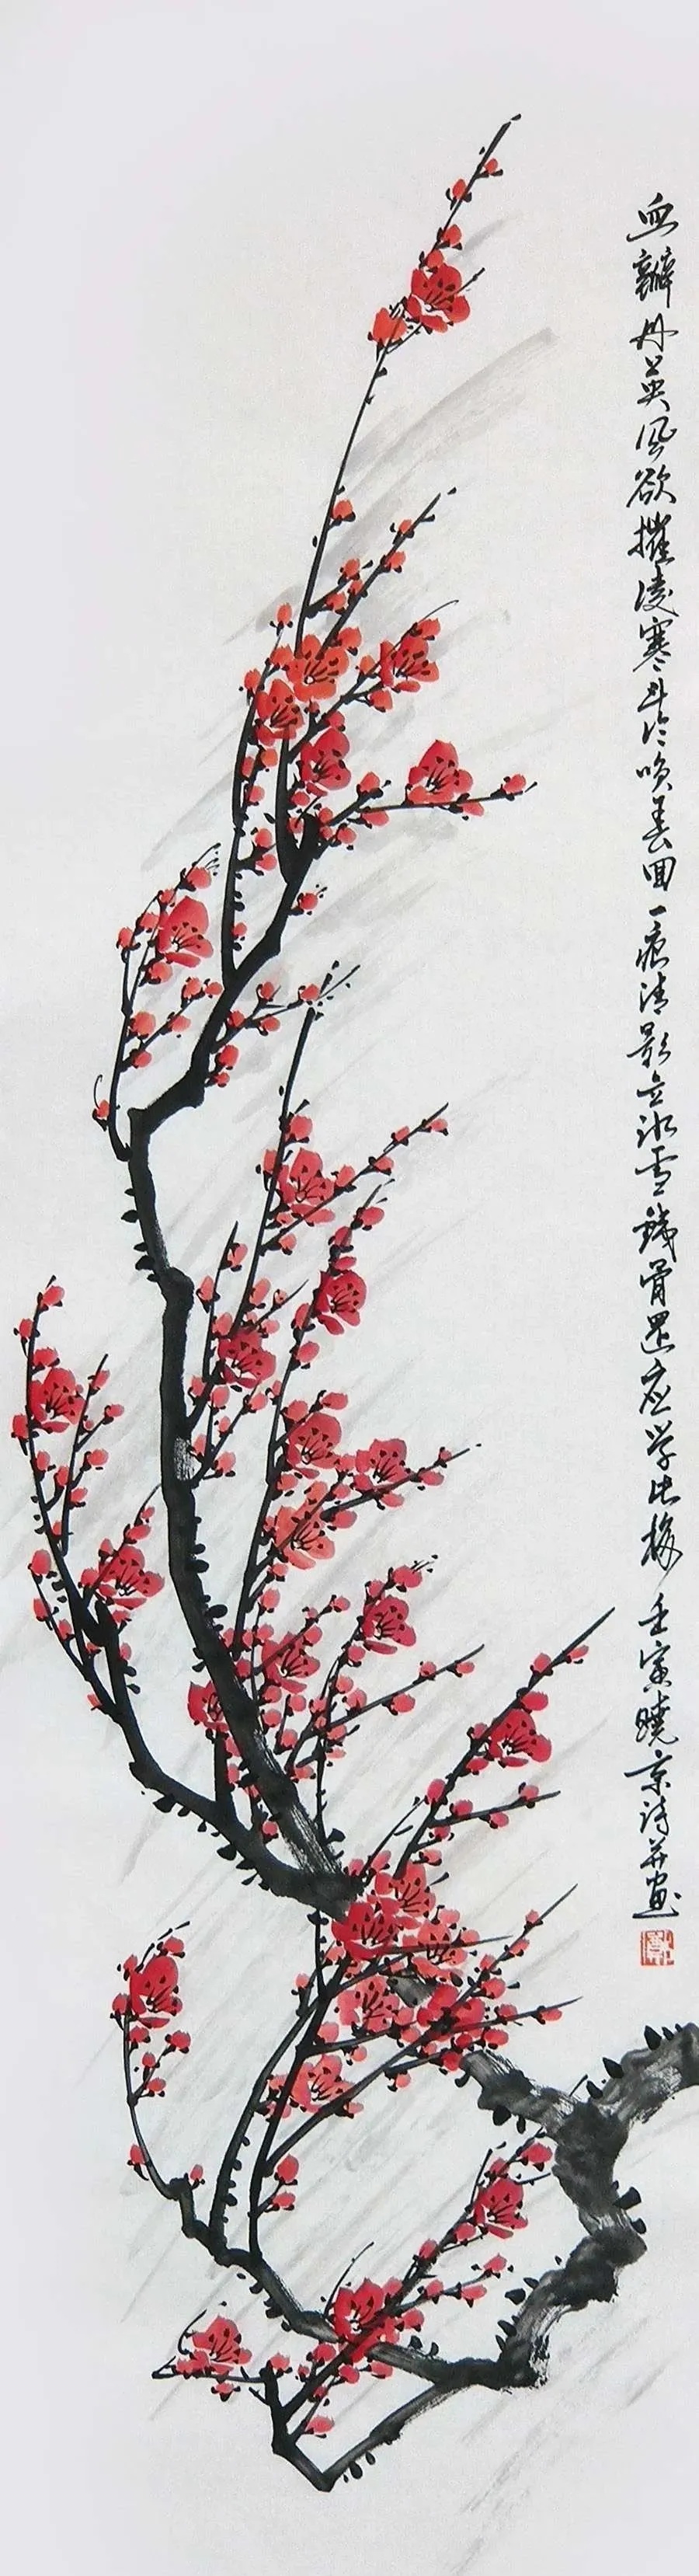 血瓣丹英风欲摧凌寒斗冷唤春回一痕清影立冰雪铁骨還应学此梅 壬寅晓京诗并画